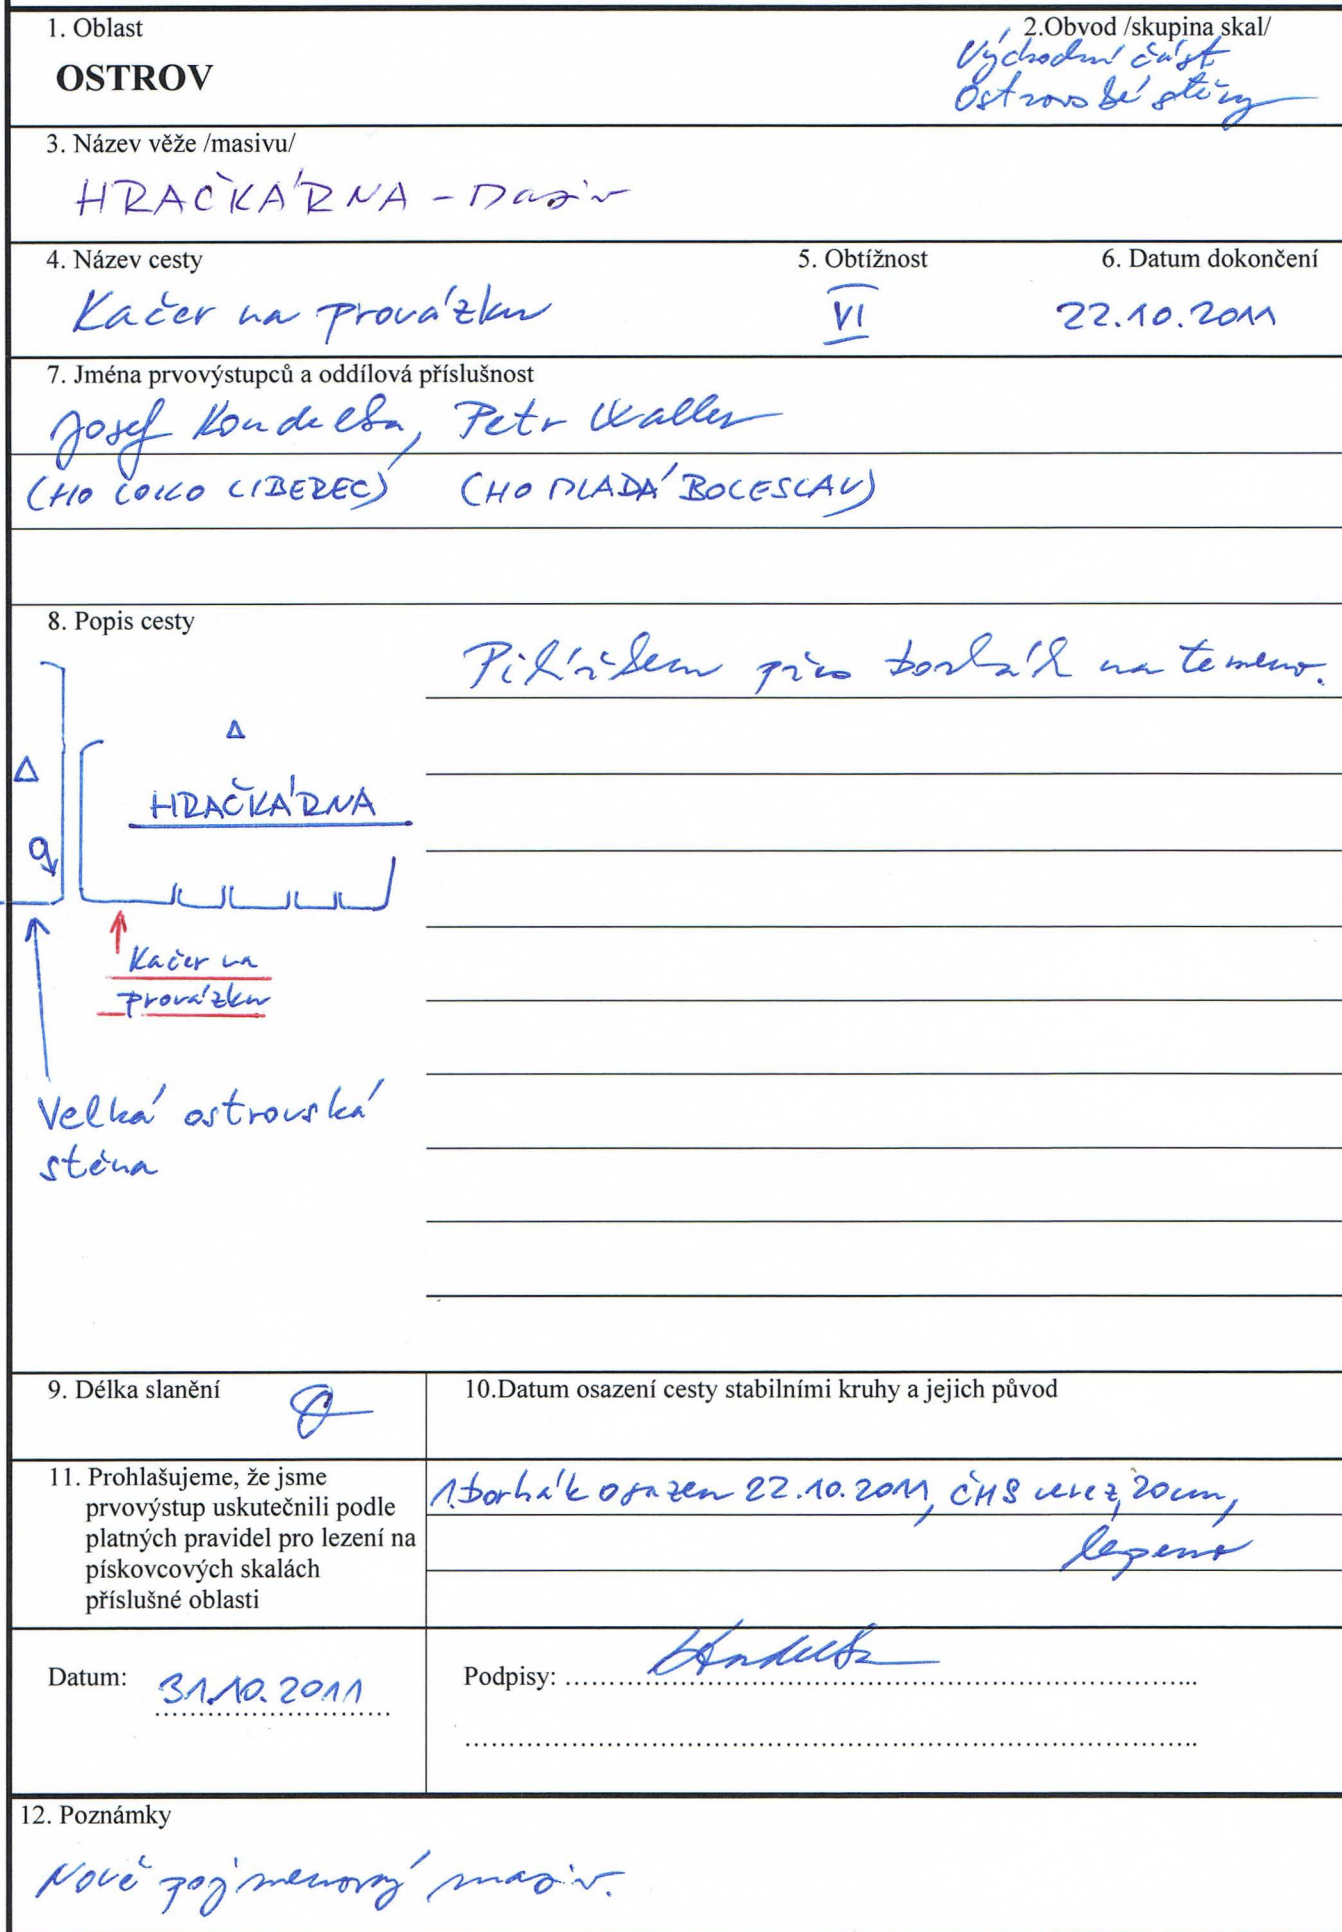 1. Oblast
2.Obvod /skupina skal/
OSTROV
Východní část
Ostrovské stěny
3. Název věže /masivu/
HRAČKÁRNA - Masiv
4. Název cesty
5. Obtížnost
6. Datum dokončení
Kačer na provázku
VI
22.10.2011
7. Jména prvovýstupců a oddílová příslušnost
Josef Koudelka, Petr Waller
(HO LOKO LIBEREC) (HO MLADÁ BOLESLAV)
8. Popis cesty
Pilířkem přes borhák na temeno.
Δ
Δ
HRAČKÁRNA
Kačer na
provázku
Velká ostrovská
stěna
9. Délka slanění
10.Datum osazení cesty stabilními kruhy a jejich původ
11. Prohlašujeme, že jsme
prvovýstup uskutečnili podle
platných pravidel pro lezení na
pískovcových skalách
příslušné oblasti
1.borhák osazen 22.10.2011, ČHS nerez, 20cm,
lepeno
Datum: 31.10.2011
Podpisy: Koudelka
12. Poznámky
Nově pojmenovaný masiv.